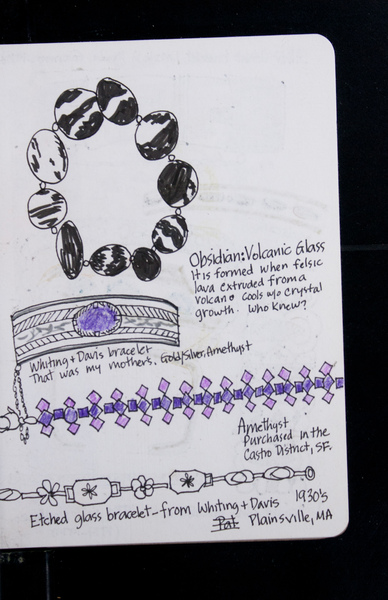 Obsidian: Volcanic Glass
It is formed when felsic
lava extruded from a
volcano cools w/o crystal
growth. Who knew?
Whiting + Davis bracelet
That was my mothers. Gold, Silver, Amethyst
Amethyst
Purchased in the
Castro District, SF.
1930's
Etched glass bracelet - from Whiting + Davis
Pat Plainsville, MA